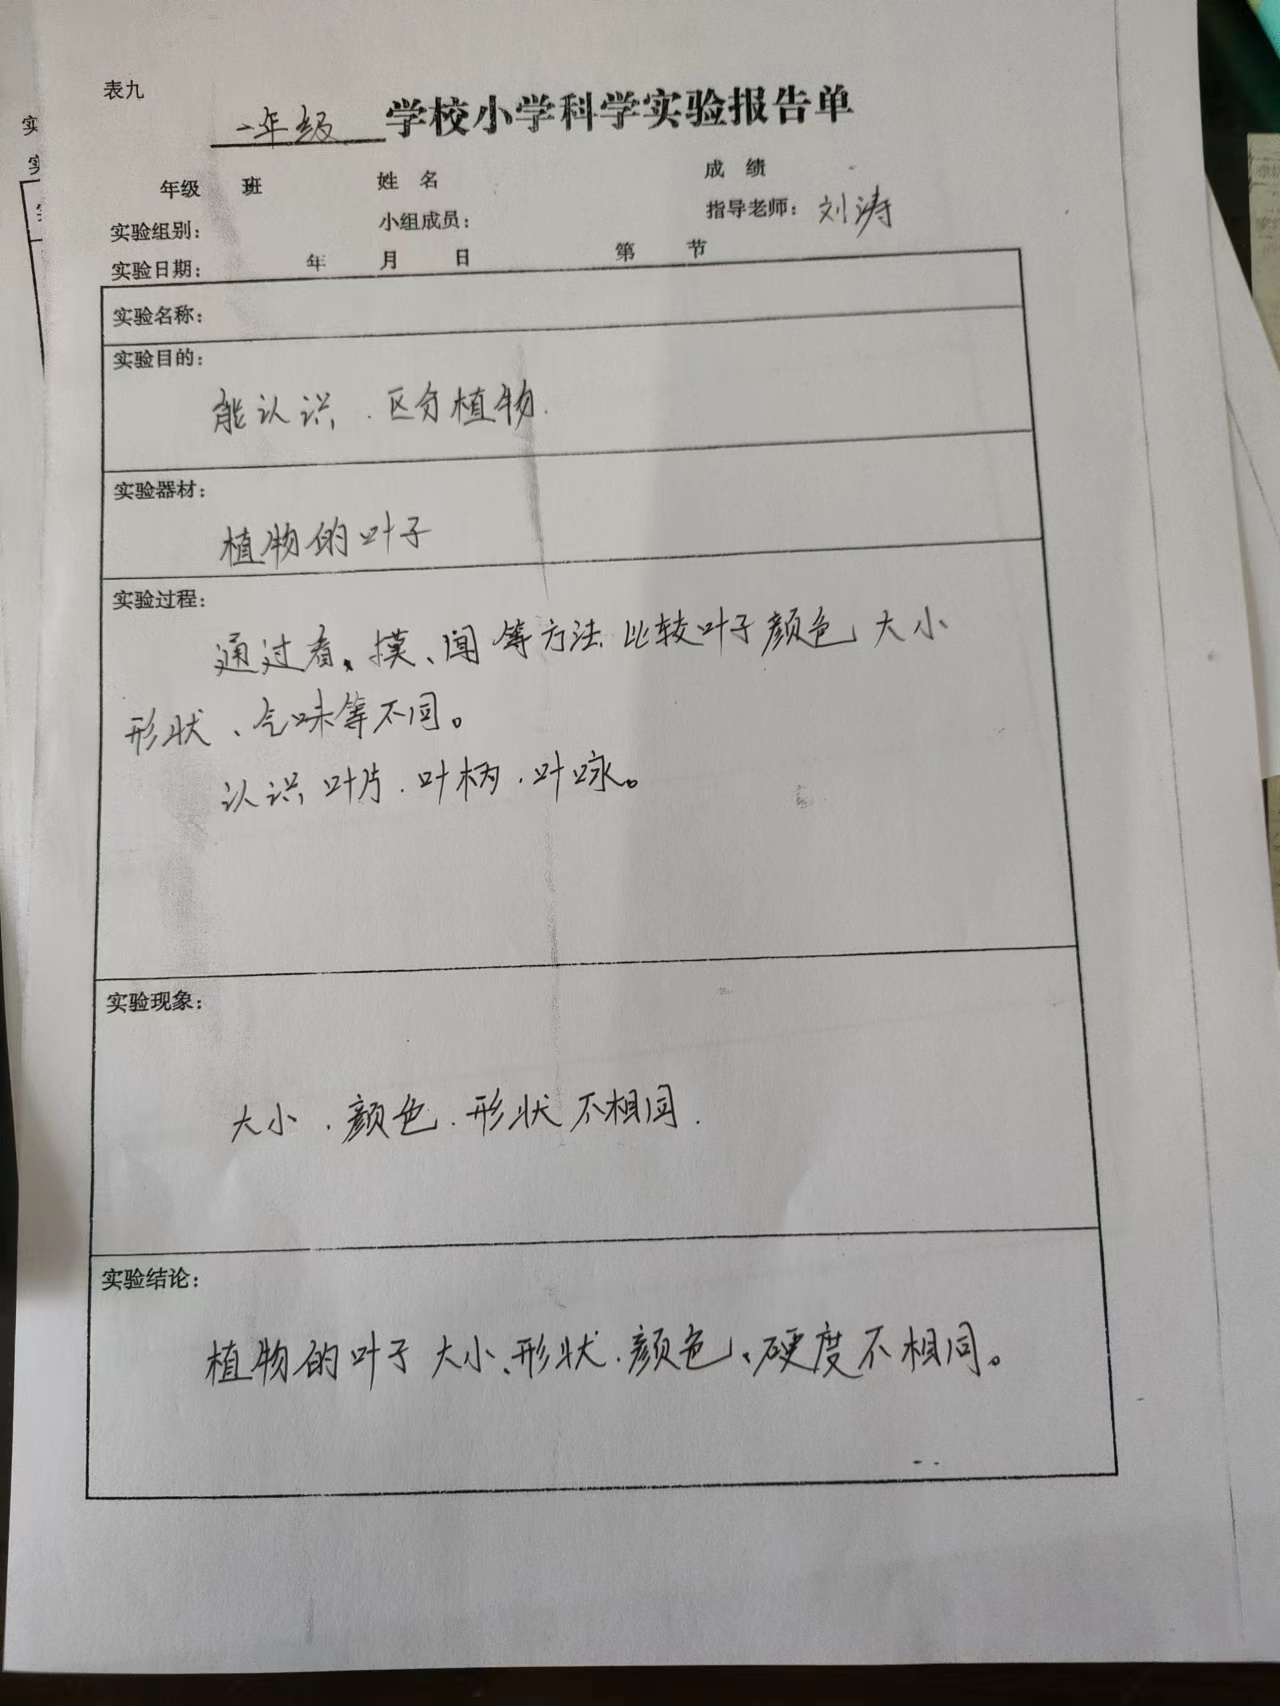 表九
一年级 学校小学科学实验报告单
年级 班 姓名 成绩
实验组别： 小组成员： 指导老师：刘涛
实验日期： 年 月 日 第 节
实验名称：
实验目的：
能认识、区分植物.
实验器材：
植物的叶子
实验过程：
通过看、摸、闻等方法，比较叶子颜色、大小
形状、气味等不同。
认识叶片、叶柄、叶咏。
实验现象：
大小、颜色、形状不相同.
实验结论：
植物的叶子大小、形状、颜色、硬度不相同。
实
实